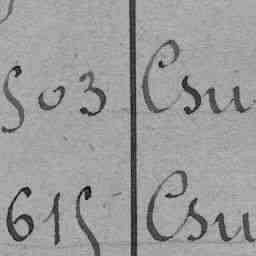 503 Csu
615 Csu